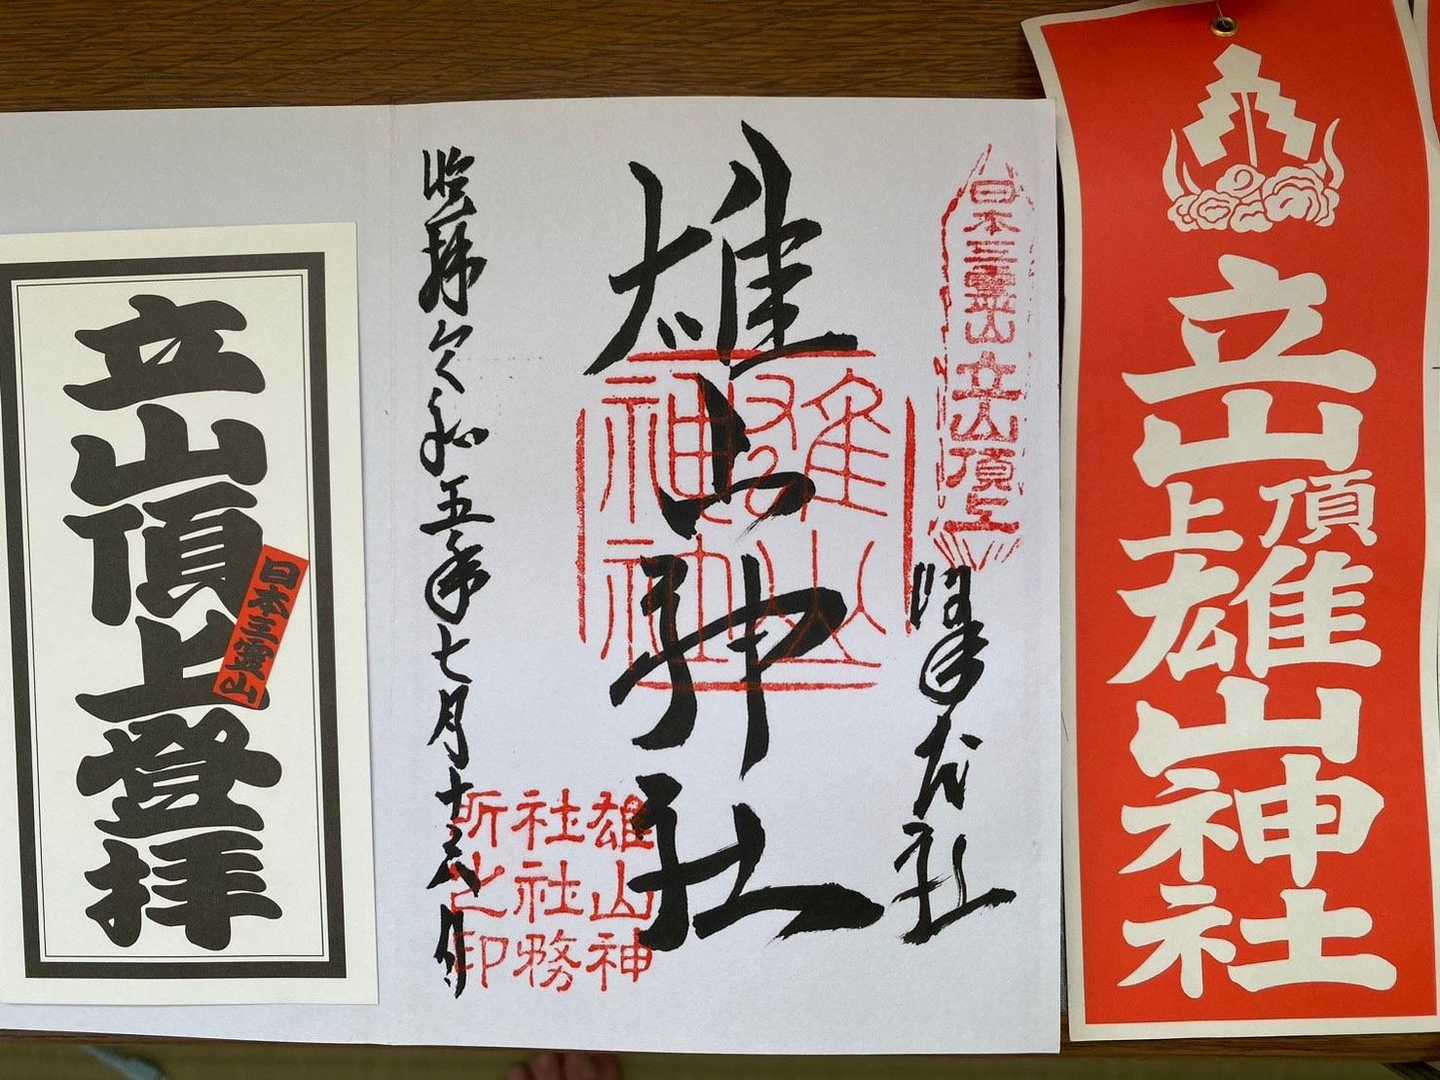 立山頂上雄山神社
日本三霊山
立山頂上
峰本社
雄山神社
雄山神社
雄山神
社社務
所之印
拝 令和五年七月十 日
立山頂上登拝
日本三霊山